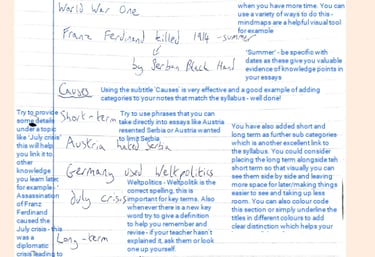 World War One
when you have more time. You can
use a variety of ways to do this -
mindmaps are a helpful visual tool
for example
Franz Ferdinand killed 1914 - summer
by Serbian Black Hand
'Summer' - be specific with
dates as these give you valuable
evidence of knowledge points in
your essays
Causes
Using the subtitle 'Causes' is very effective and a good example of adding
categories to your notes that match the syllabus - well done!
Try to provide
some details
under a topic
like 'July crisis'
this will help
you link it to
other
knowledge
you learn later,
for example - '
Assassination
of Franz
Ferdinand
caused the
July crisis - this
was a
diplomatic
crisis leading to
Short-term
Try to use phrases that you can
take directly into essays like Austria
resented Serbia or Austria wanted
to limit Serbia
Austria hated Serbia
Germany used Weltpolitics
Weltpolitics - Weltpolitik is the
correct spelling, this is
important for key terms. Also
whenever there is a new key
word try to give a definition
to help you remember and
revise - if your teacher hasn't
explained it, ask them or look
one up yourself.
July crisis
Long-term
You have also added short and
long term as further sub categories
which is another excellent link to
the syllabus. You could consider
placing the long term alongside teh
short term so that visually you can
see them side by side and leaving
more space for later/making things
easier to see and taking up less
room. You can also colour code
this section or simply underline the
titles in different colours to add
clear distinction which helps your